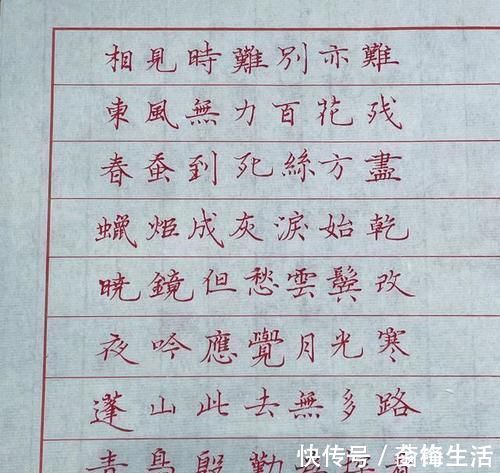 相見時難別亦難
東風無力百花残
春蚕到死絲方盡
蠟炬成灰淚始乾
暁鏡但愁雲鬓改
夜吟應覺月光寒
蓬山此去無多路
青鳥殷勤
快传号 / 生活